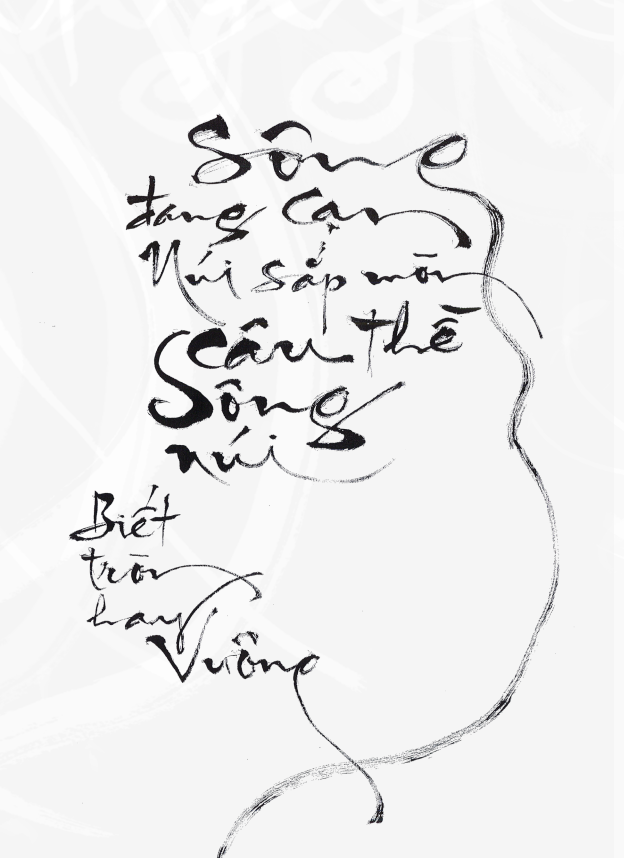 Sông
đang cạn
Núi sắp mòn
câu thề
Sông
núi
Biết
tròn
hay
Vuông